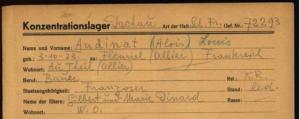 Konzentrationslager Dachau Art der Haft: Sch. Fr. Gef. Nr.: 72293
Name und Vorname: Audinat (Alois) Louis
geb.: 3.10.23 zu: Fleuriel (Allier) Frankreich
Wohnort: Au Theil (Allier)
Beruf: Bauer Rel.: K.R.
Staatsangehörigkeit: Franzose Stand: led.
Name der Eltern: Gilbert und Marie Dinard Rasse:
Wohnort: W. O.